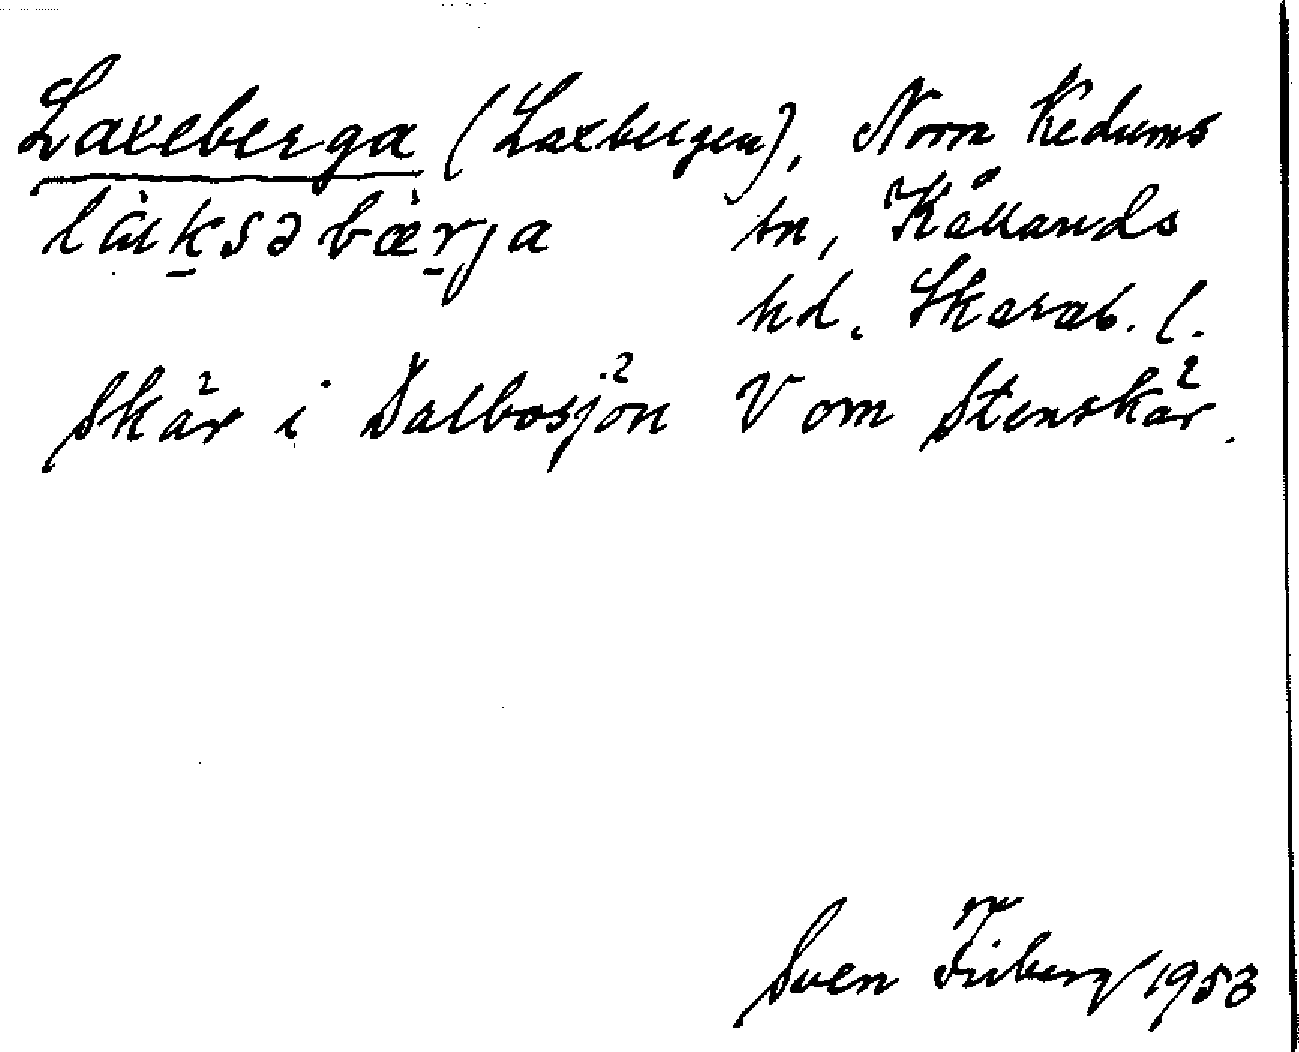 Laxeberga (Laxbergen), Norra Kedums
làksəbæ̀r̠ja sn, Kållands
hd. Skarab. l.
Skär i Dalbosjön V om Stenskär.
Sven Friberg 1953